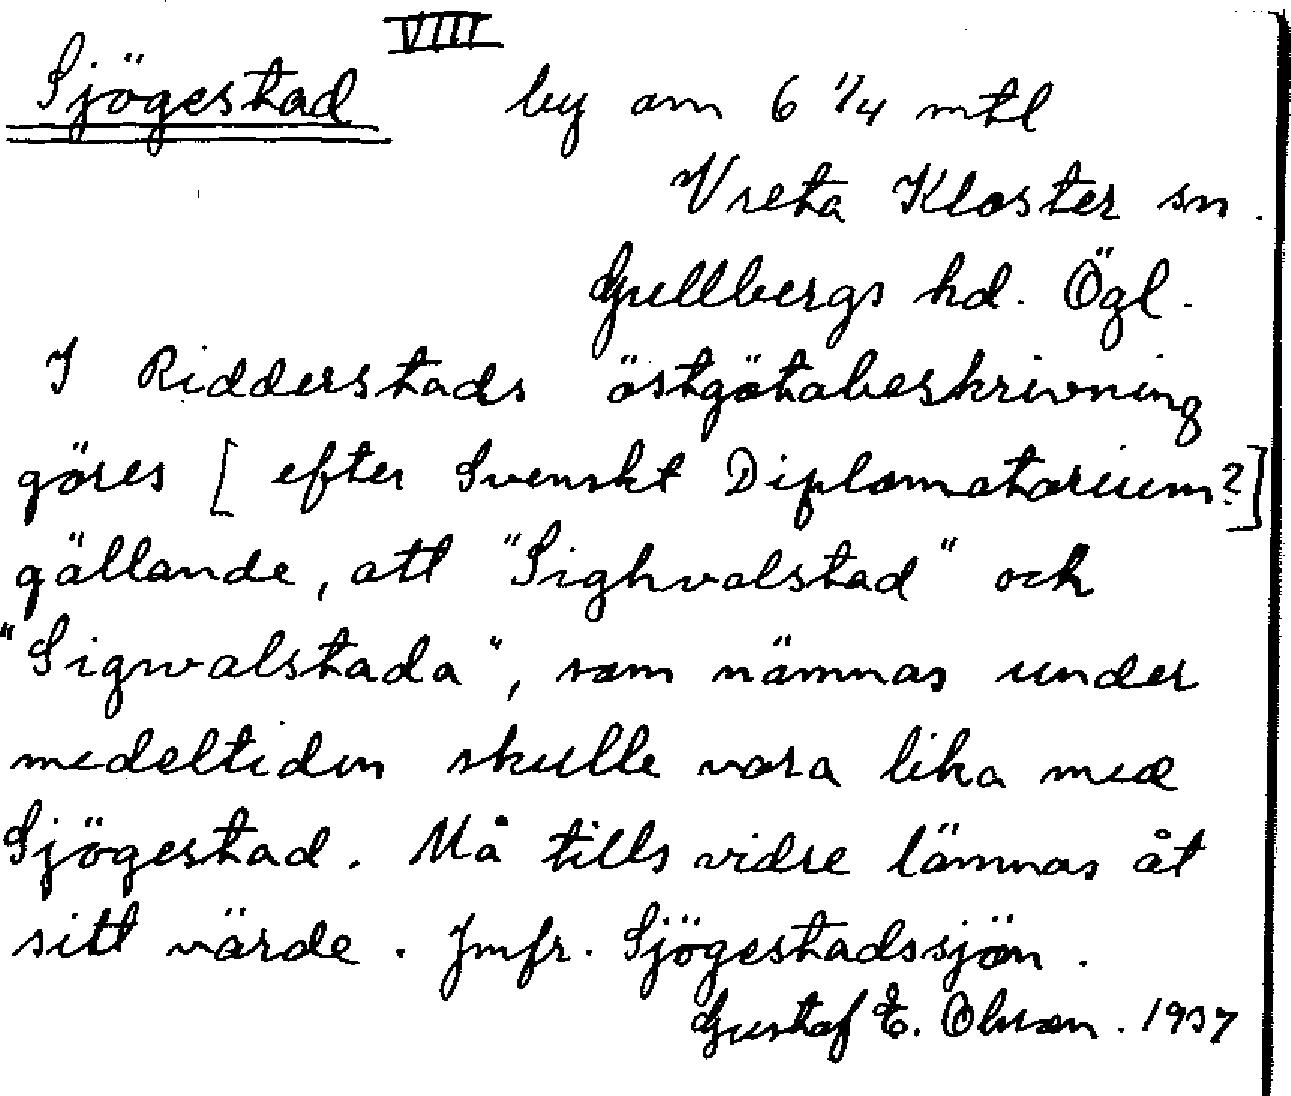 VIII
Sjögestad by om 6 1/4 mtl
Vreta Kloster sn.
Gullbergs hd. Ögl.
I Ridderstads östgötabeskrivning
göres [ efter Svenskt Diplomatarium?]
gällande, att "Sighvalstad" och
"Sigwalstada", som nämnas under
medeltiden skulle vara lika med
Sjögestad. Må tills vidre lämnas åt
sitt värde. Jmfr. Sjögestadssjön.
Gustaf E. Olsson. 1937